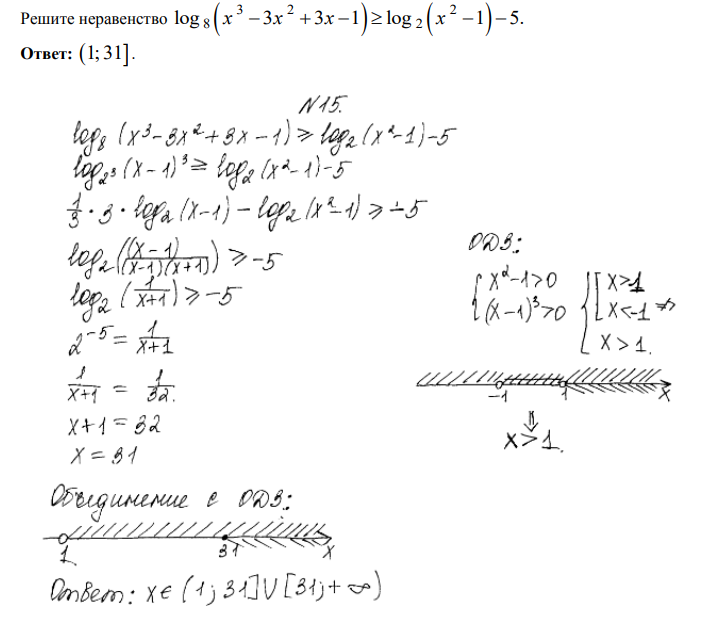 Решите неравенство log₈(x³ − 3x² + 3x − 1) ≥ log₂(x² − 1) − 5.
Ответ: (1; 31].
N15.
log₈ (x³ − 3x² + 3x − 1) ≥ log₂ (x² − 1) − 5
log₂³ (x − 1)³ ≥ log₂ (x² − 1) − 5
1/3 · 3 · log₂ (x − 1) − log₂ (x² − 1) ≥ −5
log₂ ((x − 1)/((x − 1)(x + 1))) ≥ −5
log₂ (1/(x+1)) ≥ −5
2⁻⁵ = 1/(x+1)
1/(x+1) = 1/32.
x + 1 = 32
x = 31
ОДЗ:
{ x² − 1 > 0 { [ x > 1
{ (x − 1)³ > 0 { [ x < −1 ⇒
{ x > 1.
−1 1 x
⇓
x > 1.
Объединение с ОДЗ:
1 31 x
Ответ: x ∈ (1; 31] ∪ [31; + ∞)